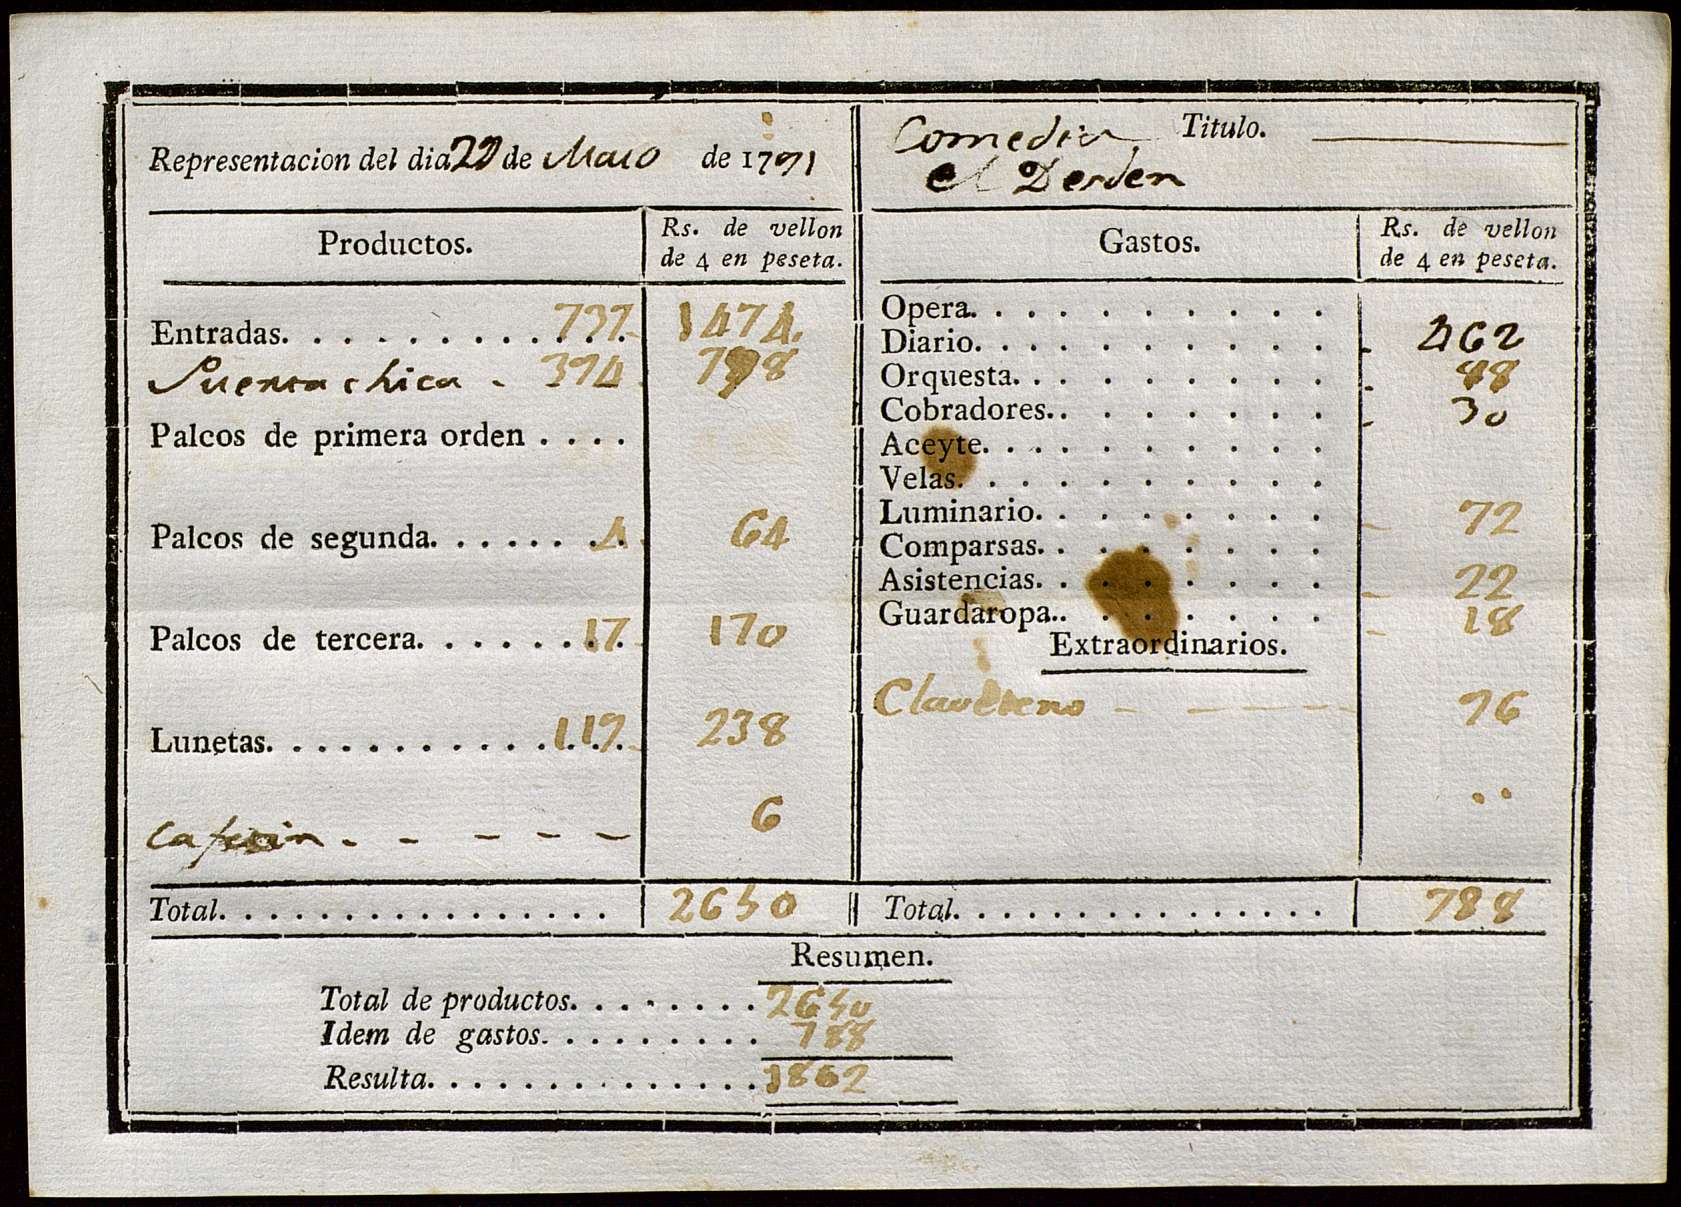 Representacion del dia de Maio de 1791
Comedia Titulo.
el Desden
Productos.
Rs. de vellon
de 4 en peseta.
Gastos.
Rs. de vellon
de 4 en peseta.
Entradas. . . . . . . . . . . . . 737. 1474.
Puerta chica - 394
Palcos de primera orden . . . .
Palcos de segunda. . . . . . . . 4 64
Palcos de tercera. . . . . . . 17. 170
Lunetas. . . . . . . . . . . . . 119. 238
- - - - - - 6
Total. . . . . . . . . . . . . . . . . 2650
Opera. . . . . . . . . .
Diario. . . . . . . . . . 462
Orquesta. . . . . . . . . 88
Cobradores. . . . . . . . 30
Aceyte. . . . . . . . . .
Velas. . . . . . . . . .
Luminario. . . . . . . . 72
Comparsas. . . . . . . .
Asistencias. . . . . . . . 22
Guardaropa. . . . . . . . 18
Extraordinarios.
- - - - - 96
Total. . . . . . . . . . . . . . . . 788
Resumen.
Total de productos. . . . . . . . 2650
Idem de gastos. . . . . . . . . . 788
Resulta. . . . . . . . . . . . . . . 1862